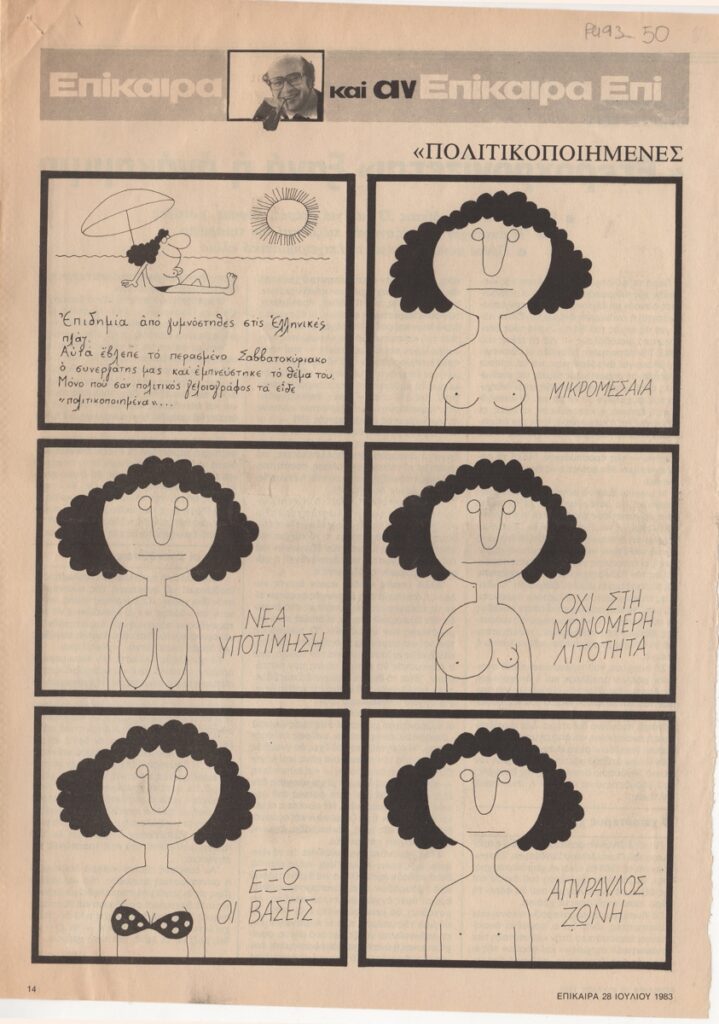 Ρ493 50
Επίκαιρα και αν Επίκαιρα Επί
«ΠΟΛΙΤΙΚΟΠΟΙΗΜΕΝΕΣ
Ἐπιδημία ἀπό γυμνόστηθες στίς Ἑλληνικές
πλάζ.
Αὐτά ἔβλεπε τό περασμένο Σαββατοκύριακο
ὁ συνεργάτης μας καί ἐμπνεύστηκε τό θέμα του.
Μόνο πού σάν πολιτικός γελοιογράφος τά εἶδε
«πολιτικοποιημένα»...
ΜΙΚΡΟΜΕΣΑΙΑ
ΝΕΑ
ΥΠΟΤΙΜΗΣΗ
ΟΧΙ ΣΤΗ
ΜΟΝΟΜΕΡΗ
ΛΙΤΟΤΗΤΑ
ΕΞΩ
ΟΙ ΒΑΣΕΙΣ
ΑΠΥΡΑΥΛΟΣ
ΖΩΝΗ
14
ΕΠΙΚΑΙΡΑ 28 ΙΟΥΛΙΟΥ 1983